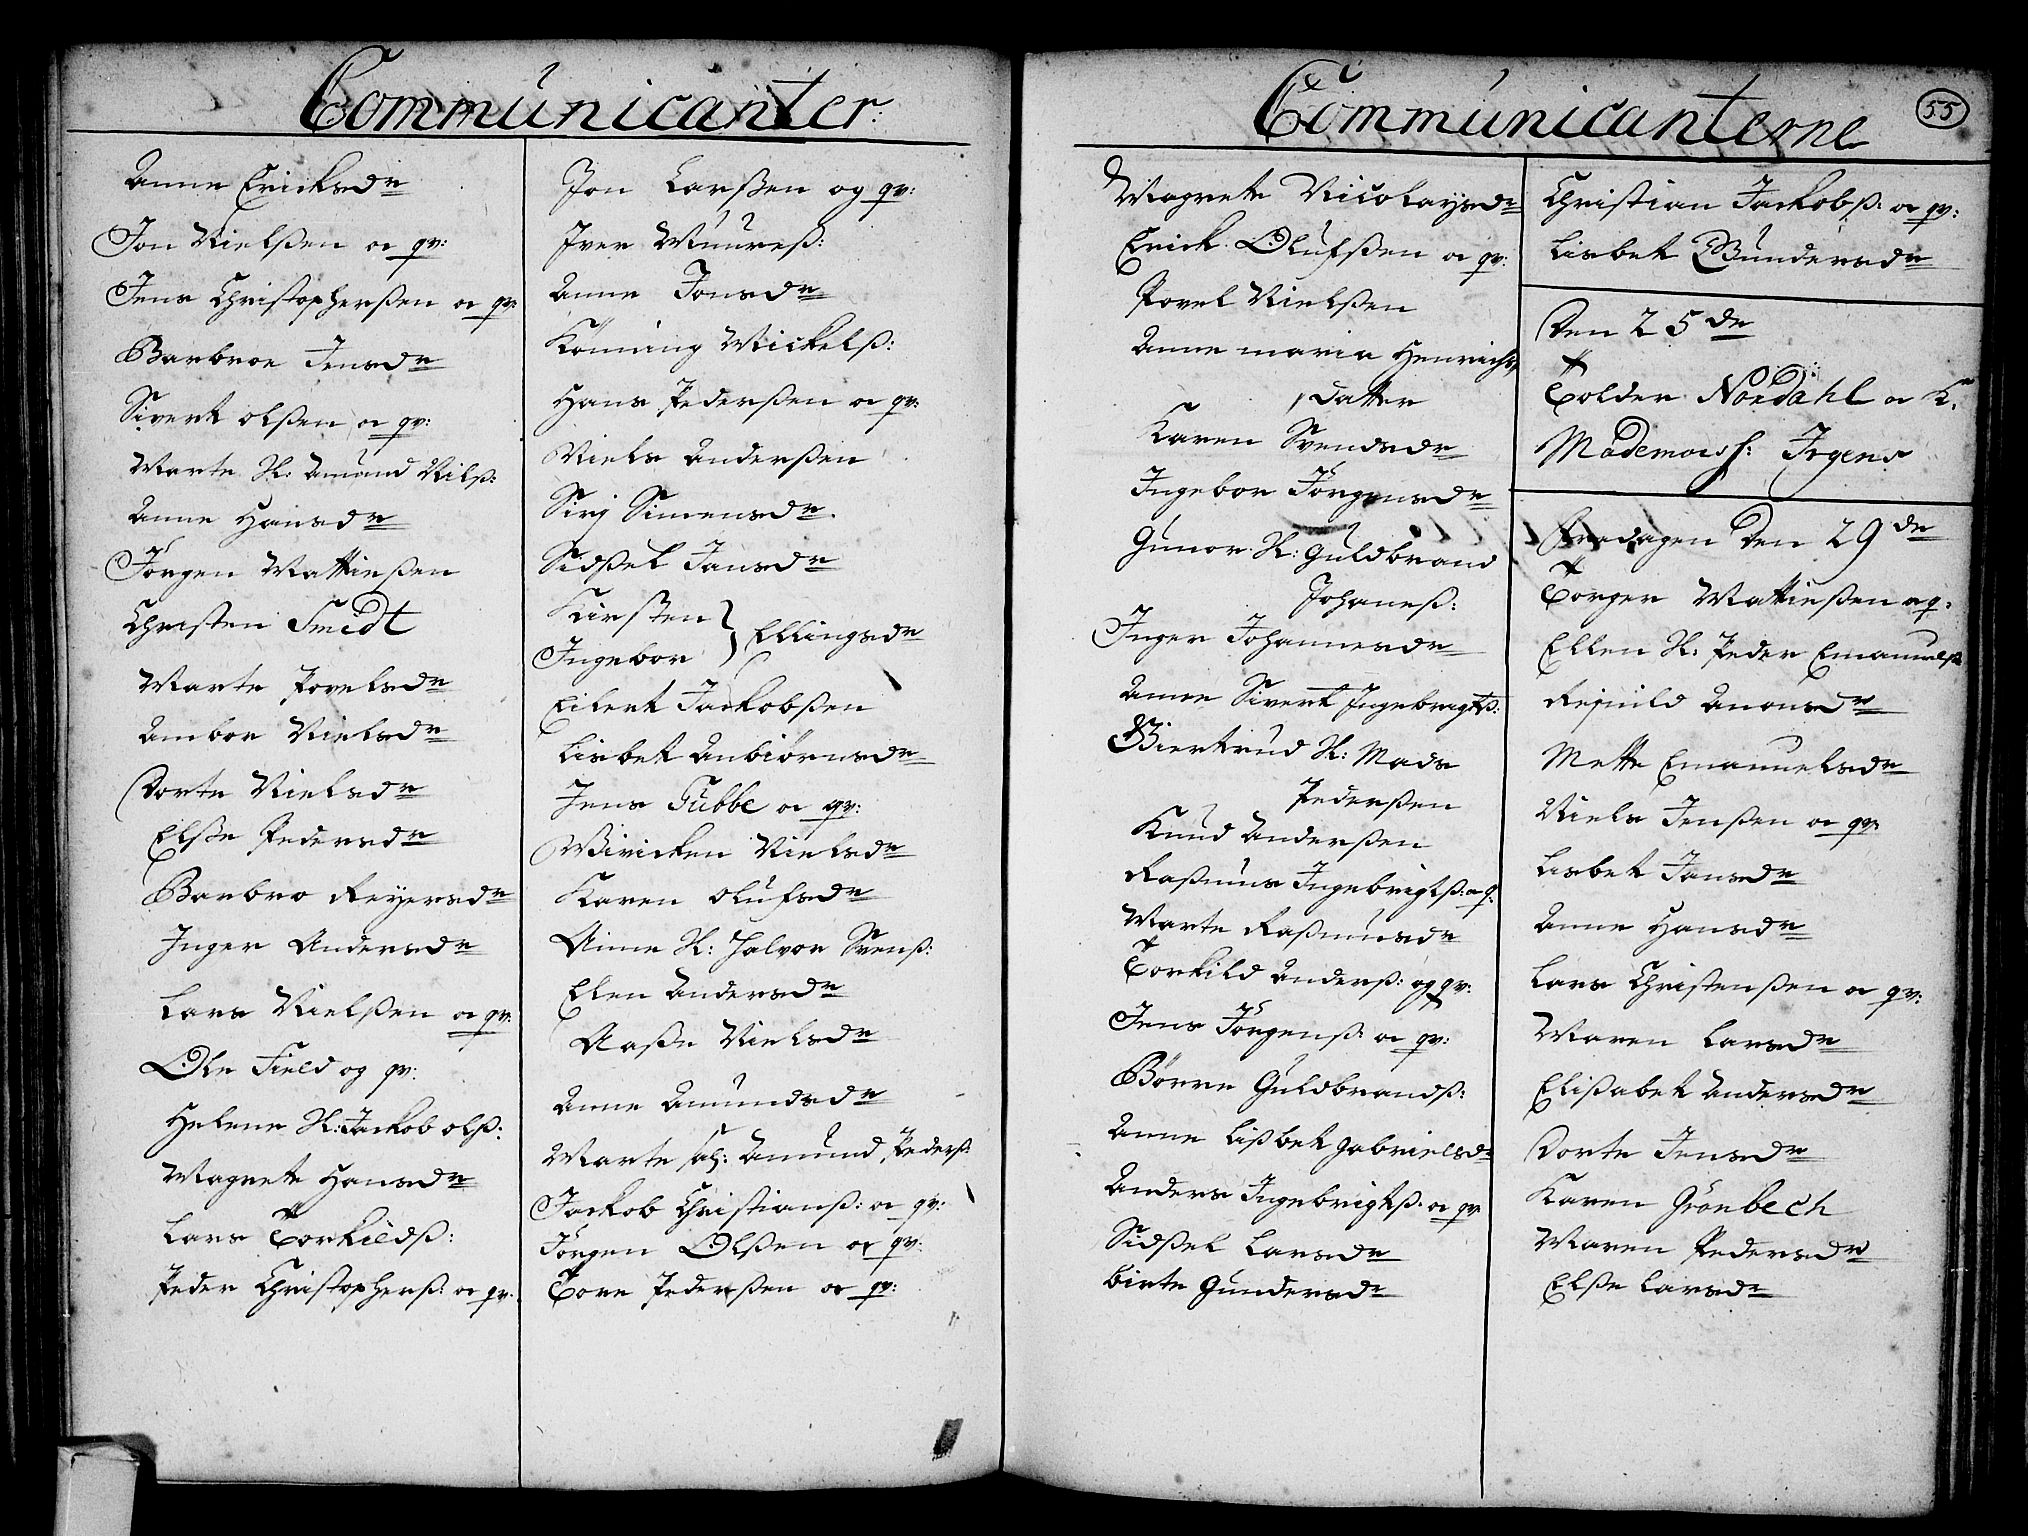 Communicanter.
Anne Ericksdr
Jon Nielßen o qv:
Jens Christopherßen o qv:
Barbroe Jensdr
Sivert olßen o qv:
Marte K: Amund Nilß:
Anne Hansdr
Jörgen Mattießen
Christen Smidt
Marte Povelsdr
Ambor Nielsdr
Dorte Nielsdr
Elße Pedersdr
Barbro Reyersdr
Inger Andersdr
Lars Nielßen o qv:
Ole Field og qv:
Helene K: Jackob olß:
Magrete Hansdr
Lars Torkildß:
Peder Christopherß: o qv:
Jon Larßen og qv:
Iver Muureß:
Anne Jonsdr
Köning Mickelß:
Hans Pederßen o qv:
Niels Anderßen
Siri Simensdr.
Sidßel Jansdr
Kirsten } Ellingsdr
Ingebor
Eilert Jackobßen
Lisbet Anbiörnsdr
Jens Tubbe o qv:
Wivicken Nielsdr
Karen olufsdr
Anne K: Halvor Svenß:
Elen Andersdr
Aaße Nielsdr
Anne Amundsdr
Marte sal: Amund Pederß:
Jackob Christianß: o qv:
Jörgen Olßen o qv:
Tore Pederßen o qv:
Communicanterne
55
Magrete Nicolaysdr
Erick Olufßen o qv:
Povel Nielßen
Anne maria Henrichs
datter
Karen Svendsdr
Ingebor Jörgensdr
Gunor K: Guldbrand
Johaneß:
Inger Johannesdr
Anne Sivert Ingebrigtß:
Biertrud K: Mads
Pederßen
Knud Anderßen
Raßmus Ingebrigtß: o q:
Marte Raßmusdr
Torkild Anderß: og qv:
Jens Jörgenß: o qv:
Börre Guldbrandß:
Anne Lißbet gabrielsdr
Anders Ingebrigtß: o qv:
Sidßel Larsdr
birte Gundersdr
Christian Jackobß: o qv:
Lisbet Gundersdr
Den 25de
Tolder Nordahl o K.
Mademois: Irgens
Fredagen Den 29de
Torger Mattießen o q:
Ellen K: Peder Emanuelß
Rejnild Anonsdr
Mette Emanuelsdr
Niels Jenßen o qv:
Lisbet Jansdr
Anne Hansdr
Lars Christenßen o qv:
Maren Larsdr
Elißabet Andersdr
Dorte Jensdr
Karen Grönbech
Maren Pedersdr
Elße Larsdr